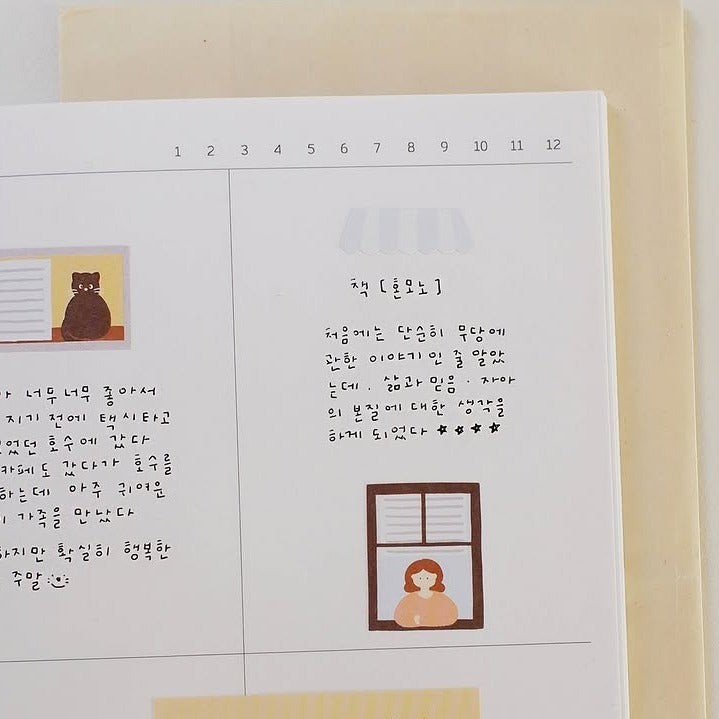 1 2 3 4 5 6 7 8 9 10 11 12
너무너무 좋아서
지기 전에 택시타고
있었던 호수에 갔다
카페도 갔다가 호수를
하는데 아주 귀여운
가족을 만났다
하지만 확실히 행복한
주말
책 [혼모노]
처음에는 단순히 무당에
관한 이야기인 줄 알았
는데. 삶과 믿음 · 자아
의 본질에 대한 생각을
하게 되었다 ★★★★